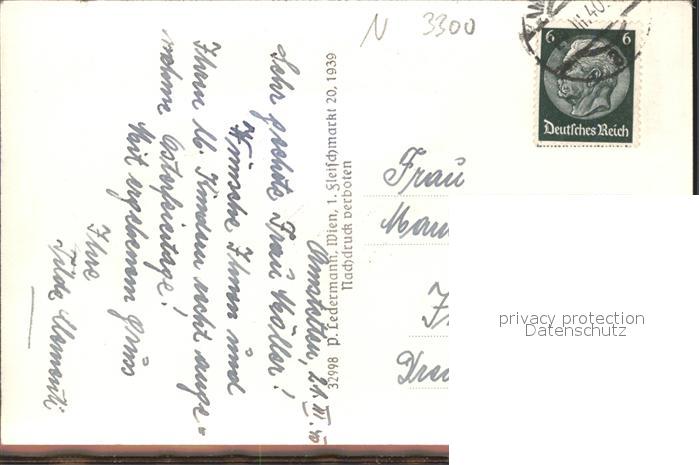 N 3300
III. 40.
6 6
Deutsches Reich
32998 P. Ledermann, Wien, 1. Fleischmarkt 20, 1939
Nachdruck verboten
Amstetten, 21. III. 40
Sehr geehrte Frau Müller!
Wünsche Ihnen und
Ihren lb. Kindern recht ange-
nehme Osterfeiertage!
Mit ergebenem Gruss
Ihre
Frau
privacy protection
Datenschutz